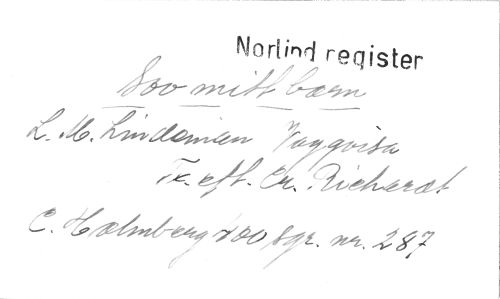 Norlind register
Sov mitt barn
L. M. Lindeman Vaggvisa
Tr. eft. Cr. Richardt
C. Holmberg 400 Sgr. nr. 287